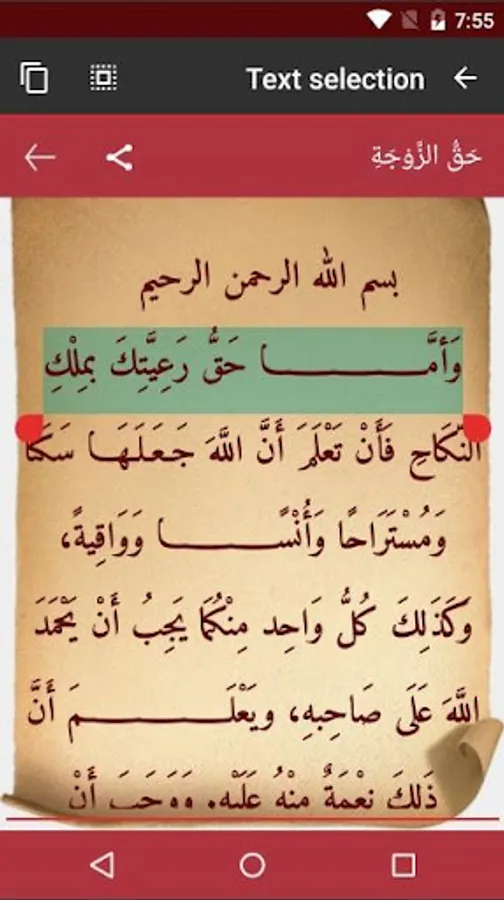 7:55
Text selection
حَقُّ الزَّوْجَةِ
بسم الله الرحمن الرحيم
وَأمَّـــــــــا حَقُّ رَعِيَّتِكَ بمِلْكِ
النِّكَاحِ فَأَنْ تَعْلَمَ أَنَّ اللَّهَ جَعَلَهَا سَكَنًا
وَمُسْتَرَاحًا وَأُنْسًـــــــا وَوَاقِيةً،
وَكَذَلِكَ كُلُّ وَاحِد مِنْكُمَا يَجِبُ أَنْ يَحْمَدَ
اللَّهَ عَلَى صَاحِبهِ، ويَعْلَـــــــــمَ أَنَّ
ذَلِكَ نِعْمَةٌ مِنْهُ عَلَيْهِ. وَوَجَبَ أَنْ